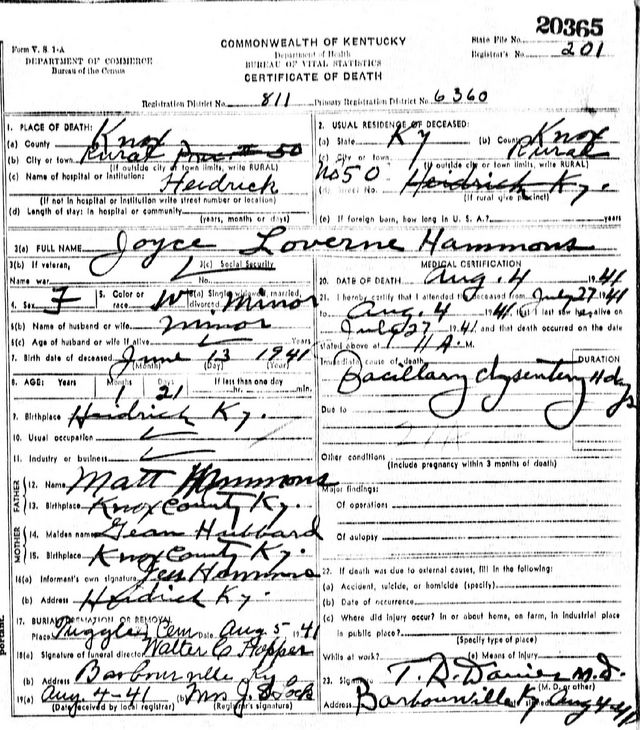 20365
Form V. S. 1-A
DEPARTMENT OF COMMERCE
Bureau of the Census
COMMONWEALTH OF KENTUCKY
Department of Health
BUREAU OF VITAL STATISTICS
CERTIFICATE OF DEATH
State File No.
Registrar's No. 201
Registration District No. 811 Primary Registration District No. 6360
1. PLACE OF DEATH:
(a) County Knox
(b) City or town Rural 50
(If outside city or town limits, write RURAL)
(c) Name of hospital or institution: Heidrick
(If not in hospital or institution write street number or location)
(d) Length of stay: In hospital or community
(years, months or days)
2. USUAL RESIDENCE OF DECEASED:
(a) State Ky (b) County Knox
(c) City or town Rural
(If outside city or town limits, write RURAL)
No 50 (d) Street No. Heidrick Ky.
(If rural give precinct)
(e) If foreign born, how long in U. S. A.? years
3(a) FULL NAME Joyce Loverne Hammons
3(b) If veteran, 3(c) Social Security
Name war No.
4. Sex F 5. Color or race W 6(a) Single, widowed, married, divorced Minor
6(b) Name of husband or wife Minor
6(c) Age of husband or wife if alive Years
7. Birth date of deceased June 13 1941
(Month) (Day) (Year)
8. AGE: Years Months Days If less than one day
1 21 hr. min.
9. Birthplace Heidrick Ky.
10. Usual occupation
11. Industry or business
FATHER
12. Name Matt Hammons
13. Birthplace Knox County Ky.
MOTHER
14. Maiden name Gean Hubbard
15. Birthplace Knox County Ky.
16(a) Informant's own signature Jess Hammons
(b) Address Heidrick Ky.
17. BURIAL, CREMATION OR REMOVAL
Place Cem Date Aug 5-41
18(a) Signature of funeral director Walter C Hopper
(b) Address Barbourville Ky
19(a) Aug 4-41 (b) Mrs J.
(Date received by local registrar) (Registrar's signature)
MEDICAL CERTIFICATION
20. DATE OF DEATH Aug. 4 1941
21. I hereby certify that I attended the deceased from July 27 1941
to Aug. 4 1941 that I last saw her alive on
July 27 1941 and that death occurred on the date
stated above at 11 A. M.
Immediate cause of death DURATION
Bacillary dysentery
Due to
Other conditions
(Include pregnancy within 3 months of death)
Major findings:
Of operations
Of autopsy
22. If death was due to external causes, fill in the following:
(a) Accident, suicide, or homicide (specify)
(b) Date of occurrence
(c) Where did injury occur? In or about home, on farm, in industrial place
in public place?
(Specify type of place)
While at work? (e) Means of Injury
23. Signature M.D.
(M. D. or other)
Address Barbourville Ky Aug 4-41